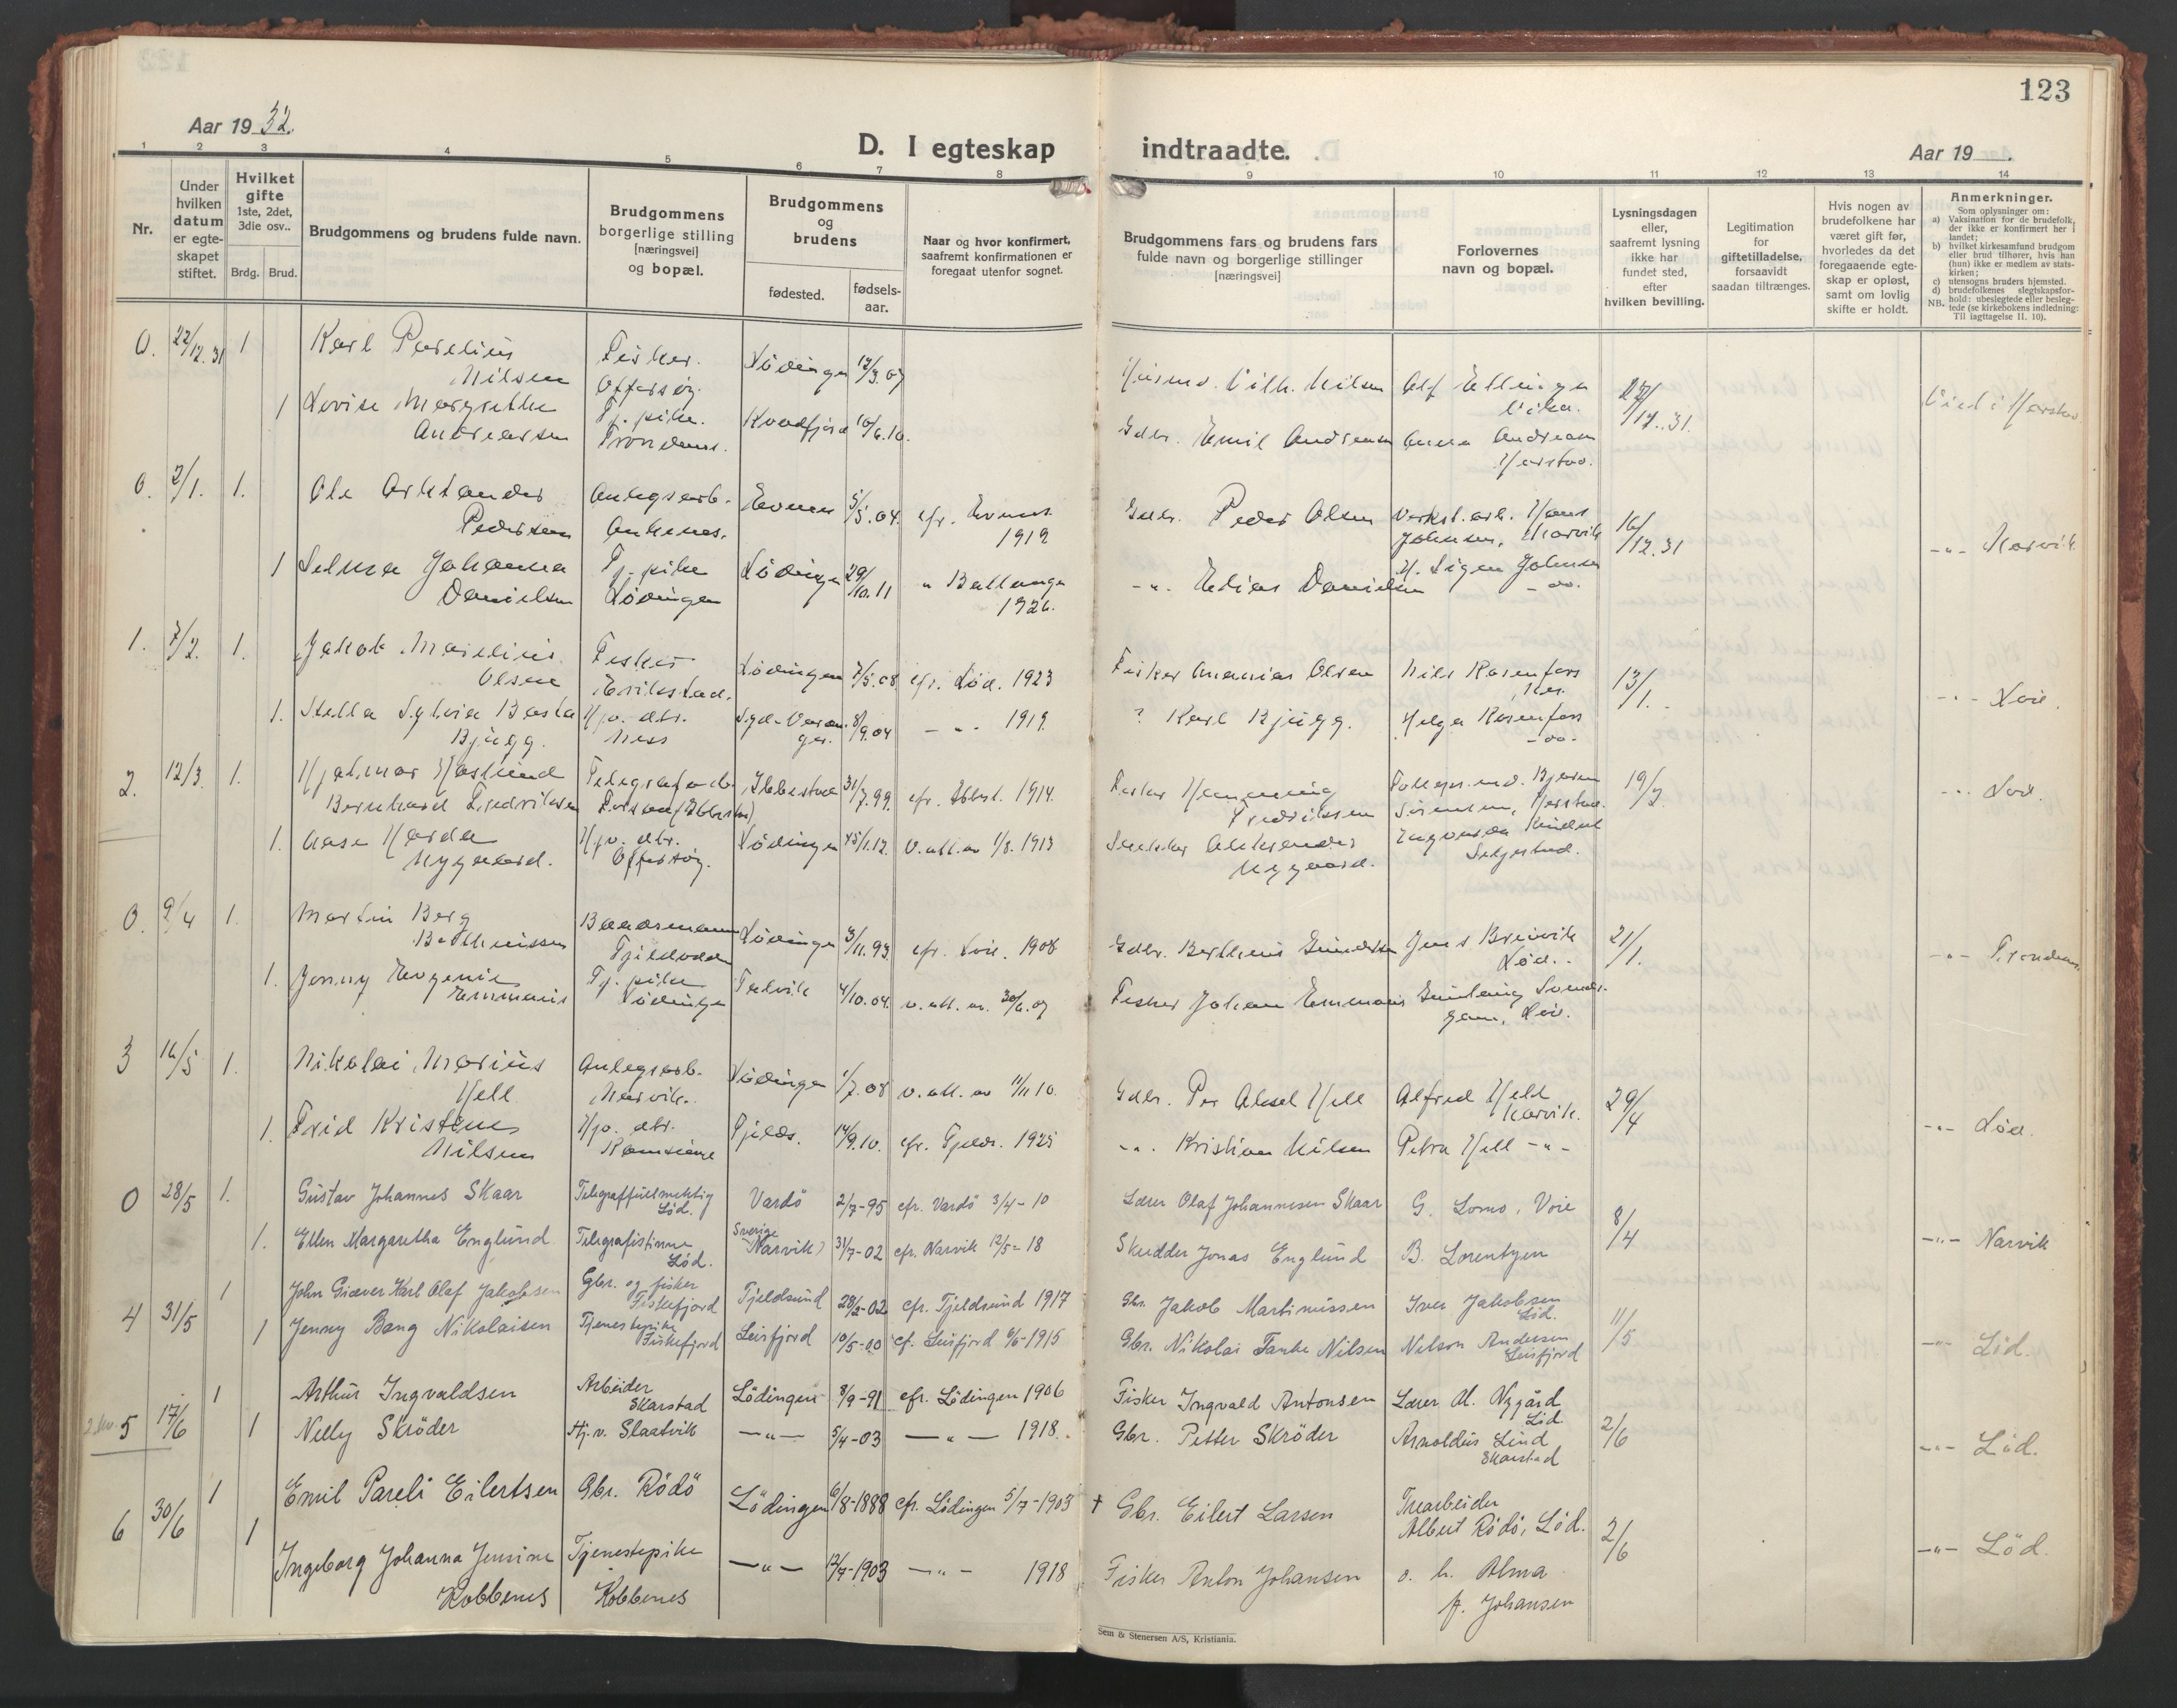 123
Aar 19 32.
D. I egteskap indtraadte.
Aar 19
1 2 3 4 5 6 7 8 9 10 11 12 13 14
Nr.
Under hvilken datum er egteskapet stiftet.
Hvilket gifte 1ste, 2det, 3die osv..
Brdg. Brud.
Brudgommens og brudens fulde navn.
Brudgommens borgerlige stilling [næringsvei] og bopæl.
Brudgommens og brudens
fødested.
fødsels-aar.
Naar og hvor konfirmert, saafremt konfirmationen er foregaat utenfor sognet.
Brudgommens fars og brudens fars fulde navn og borgerlige stillinger [næringsvei]
Forlovernes navn og bopæl.
Lysningsdagen eller, saafremt lysning ikke har fundet sted, efter hvilken bevilling.
Legitimation for giftetilladelse, forsaavidt saadan tiltrænges.
Hvis nogen av brudefolkene har været gift før, hvorledes da det foregaaende egteskap er opløst, samt om lovlig skifte er holdt.
Anmerkninger.
Som oplysninger om:
a) Vaksination for de brudefolk, der ikke er konfirmert her i landet;
b) hvilket kirkesamfund brudgom eller brud tilhører, hvis han (hun) ikke er medlem av statskirken;
c) utensogns bruders hjemsted.
d) brudefolkenes slegtskapsforhold: ubeslegtede eller beslegtede (se kirkebokens indledning: Til iagttagelse II. 10).
NB.
0. 22/12.31 1 Karl Parelius Nilsen Fisker. Offersøy. Lödingen 12/3.07 Vilh. Nilsen Alf Ellingsen Vika. 17.31. Viet i Harstad
1 Lovise Margrethe Andreassen Tj. pike. Trondenes. Kvædfjord 10/6.10. Gdbr. Emil Andreassen Anna Andreassen Harstad.
0. 2/1. 1. Ole Arktander Pedersen Anlegsarb. Ankenes. Evenes 5/5.04. efr. Evenes 1919 Gdbr. Peder Olsen Verkst.arb. Hans Johnsen, Narvik 16/12.31 -"- Narvik.
1 Selma Johanna Danielsen Tj. pike Lödingen Lödingen 29/10.11 " Ballangen 1926. -"- Edias Danielsen H. Signe Johnsen -oo-
1. 7/2. 1. Jakob Marelius Olsen Fisker Erikstad. Lödingen 7/5.08 efr. Löd. 1923 Fisker Ananias Olsen Nils Rosenfors Nes. 13/1. -"- Löd.
1. Stella Sylvia Basta Bjugg. Hjv. dtr. Ness Syd-Varanger. 8/9.04 -"- 1919. ? Karl Bjugg. Helga Rosenfors -oo-
2. 12/3. 1. Hjalmar Haslund Bernhard Fredriksen Telegrafarb. (Ibbestad) Ibbestad 31/7.99. efr. Ibbest. 1914. Fisker Henning Fredriksen Bjarne Sörensen, Harstad. 19/2 -"- Löd.
1. Aase Harda Nygaard. Hjv. dtr. Offersöy. Lödingen 1.12. v. att. av 1/8. 1913 Snekker Aleksander Nygaard. Seljestad.
0. 9/4 1. Martin Berg Berthinussen Baadsmann Fjeldvadn Lödingen 3/11.93. efr. Löd. 1908 Gdbr. Berthinus Gundersen Jens Breivik Löd. 21/1. -"- Trondenes.
1. Jenny Eugenie Emmaus Tj. pike Lödingen Talvik 4/10.04. v. att. av. 30/6.07 Fisker Johan Emmaus Löd.
3 16/5 1. Nikolai Marius Hell Anlegsarb. Narvik. Lödingen 1/7.08 v. att. av 11/11 10. Gdbr. Per Aksel Hell Alfred Hell Narvik. 29/4 -"- Löd.
1. Frid Kristine Nilsen Hjv. dtr. Ramsund Fjelds. 14/9.10. efr. Fjelds. 1925 -"- Kristian Nilsen Petra Hell -"-
0 28/5 1. Gustav Johannes Skaar Telegraffullmektig Löd. Vardö 2/7-95 efr. Vardö 3/4-10 Lærer Olaf Johannesen Skaar G. Lomo, Voie 8/4 -"- Narvik
1. Ellen Margaretha Englund Telegrafistinne Löd. Sverige (Narvik) 31/7-02 efr. Narvik 12/5-18 Skredder Jonas Englund B. Lorentzen
4 31/5 1 John Giæver Karl Olaf Jakobsen Gbr. og fisker Fiskefjord Tjeldsund 28/2-02 efr. Tjeldsund 1917 Gbr. Jakob Martinussen Iver Jakobsen Löd. 11/5 -"- Löd.
1 Jenny Bang Nikolaisen Tjenestepike Fiskefjord Leirfjord 10/5-00 cf. Leirfjord 6/6-1915 Gbr. Nikolai Tanke Nilsen Nelson Andersen Leirfjord
5 17/6 1 Arthur Ingvaldsen Arbeider Skarstad Lödingen 8/9-91 efr. Lödingen 1906 Fisker Ingvald Antonsen Lærer Al. Nygård Löd. 2/6 -"- Löd.
1 Nelly Skröder Hj.v. Slaatvik -"- 5/4-03 -"- 1918. Gbr. Petter Skröder Arnoldus Lind Skarstad
6 30/6 1 Emil Pareli Eilertsen Gbr. Rödö Lödingen 6/8-1888 efr. Lödingen 5/7-1903 † Gbr. Eilert Larsen Trearbeider Albert Rödö, Löd. 2/6 -"- Löd.
1 Ingeborg Johanna Jensine Kobbenes Tjenestepike Kobbenes -"- 12/7-1903 -"- 1918 Fisker Anton Johansen o. h. Alma f. Johansen
Sem & Stenersen A/S, Kristiania.